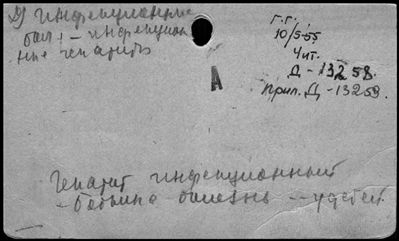 2) инфекционные
бол. – инфекцион
ные гепатиты
Г.Г.
10/5-55
Чит.
Д - 13258.
Прил. Д - 13259.
А
Гепатит инфекционный
- Боткина болезнь -- у детей